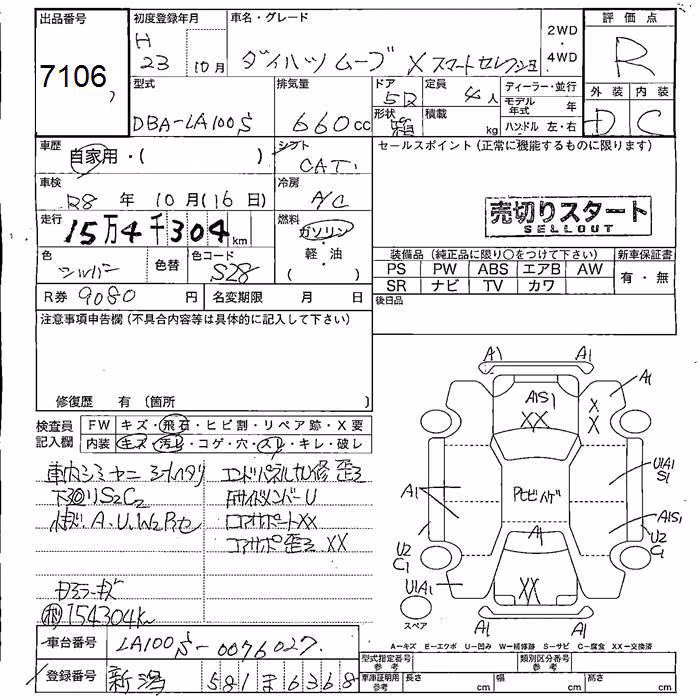 出品番号
7106
初度登録年月
H
23 10月
車名・グレード
ダイハツ ムーブ X スマートセレクション
2WD
・
4WD
評価点
R
外装 内装
D C
型式
DBA-LA100S
排気量
660cc
ドア
5D
形状
定員
4人
積載
kg
ディーラー・並行
モデル年式 年
ハンドル 左・右
車歴
自家用・( )
シフト
CAT
車検
R8年 10月(16日)
冷房
A/C
走行
15万4千304km
燃料
ガソリン
・
軽・油
( )
色
シルバー
色替
色コード
S28
R券 9080円
名変期限 月 日
セールスポイント(正常に機能するものに限ります)
売切りスタート
SELLOUT
装備品(純正品に限り〇をつけて下さい)
新車保証書
PS PW ABS エアB AW
SR ナビ TV カワ
有・無
後日品
注意事項申告欄(不具合内容等は具体的に記入して下さい)
修復歴 有(箇所 )
検査員記入欄
FW キズ・飛石・ヒビ割・リペア跡・X要
内装 キズ・汚れ・コゲ・穴・スレ・キレ・破レ
車内シミヤニ シートヘタリ
下廻りS2C2
A.U.W2
154304k
エンドパネルU修 歪
FサイドメンバーU
コアサポートXX
コアサポ歪 XX
A1 A1
A1S1
XX
A1
X
X
A1
U1A1
S1
A1S1
U2
C1
U2
C1
A1
XX
U1A1
A1 A1
スペア
A=キズ E=エクボ U=凹み W=補修跡 S=サビ C=腐食 XX=交換済
車台番号 LA100S-0076027
登録番号 新潟 581 ま 6368
型式指定番号 参考
類別区分番号 参考
車庫証明用 参考
長さ cm
幅 cm
高さ cm